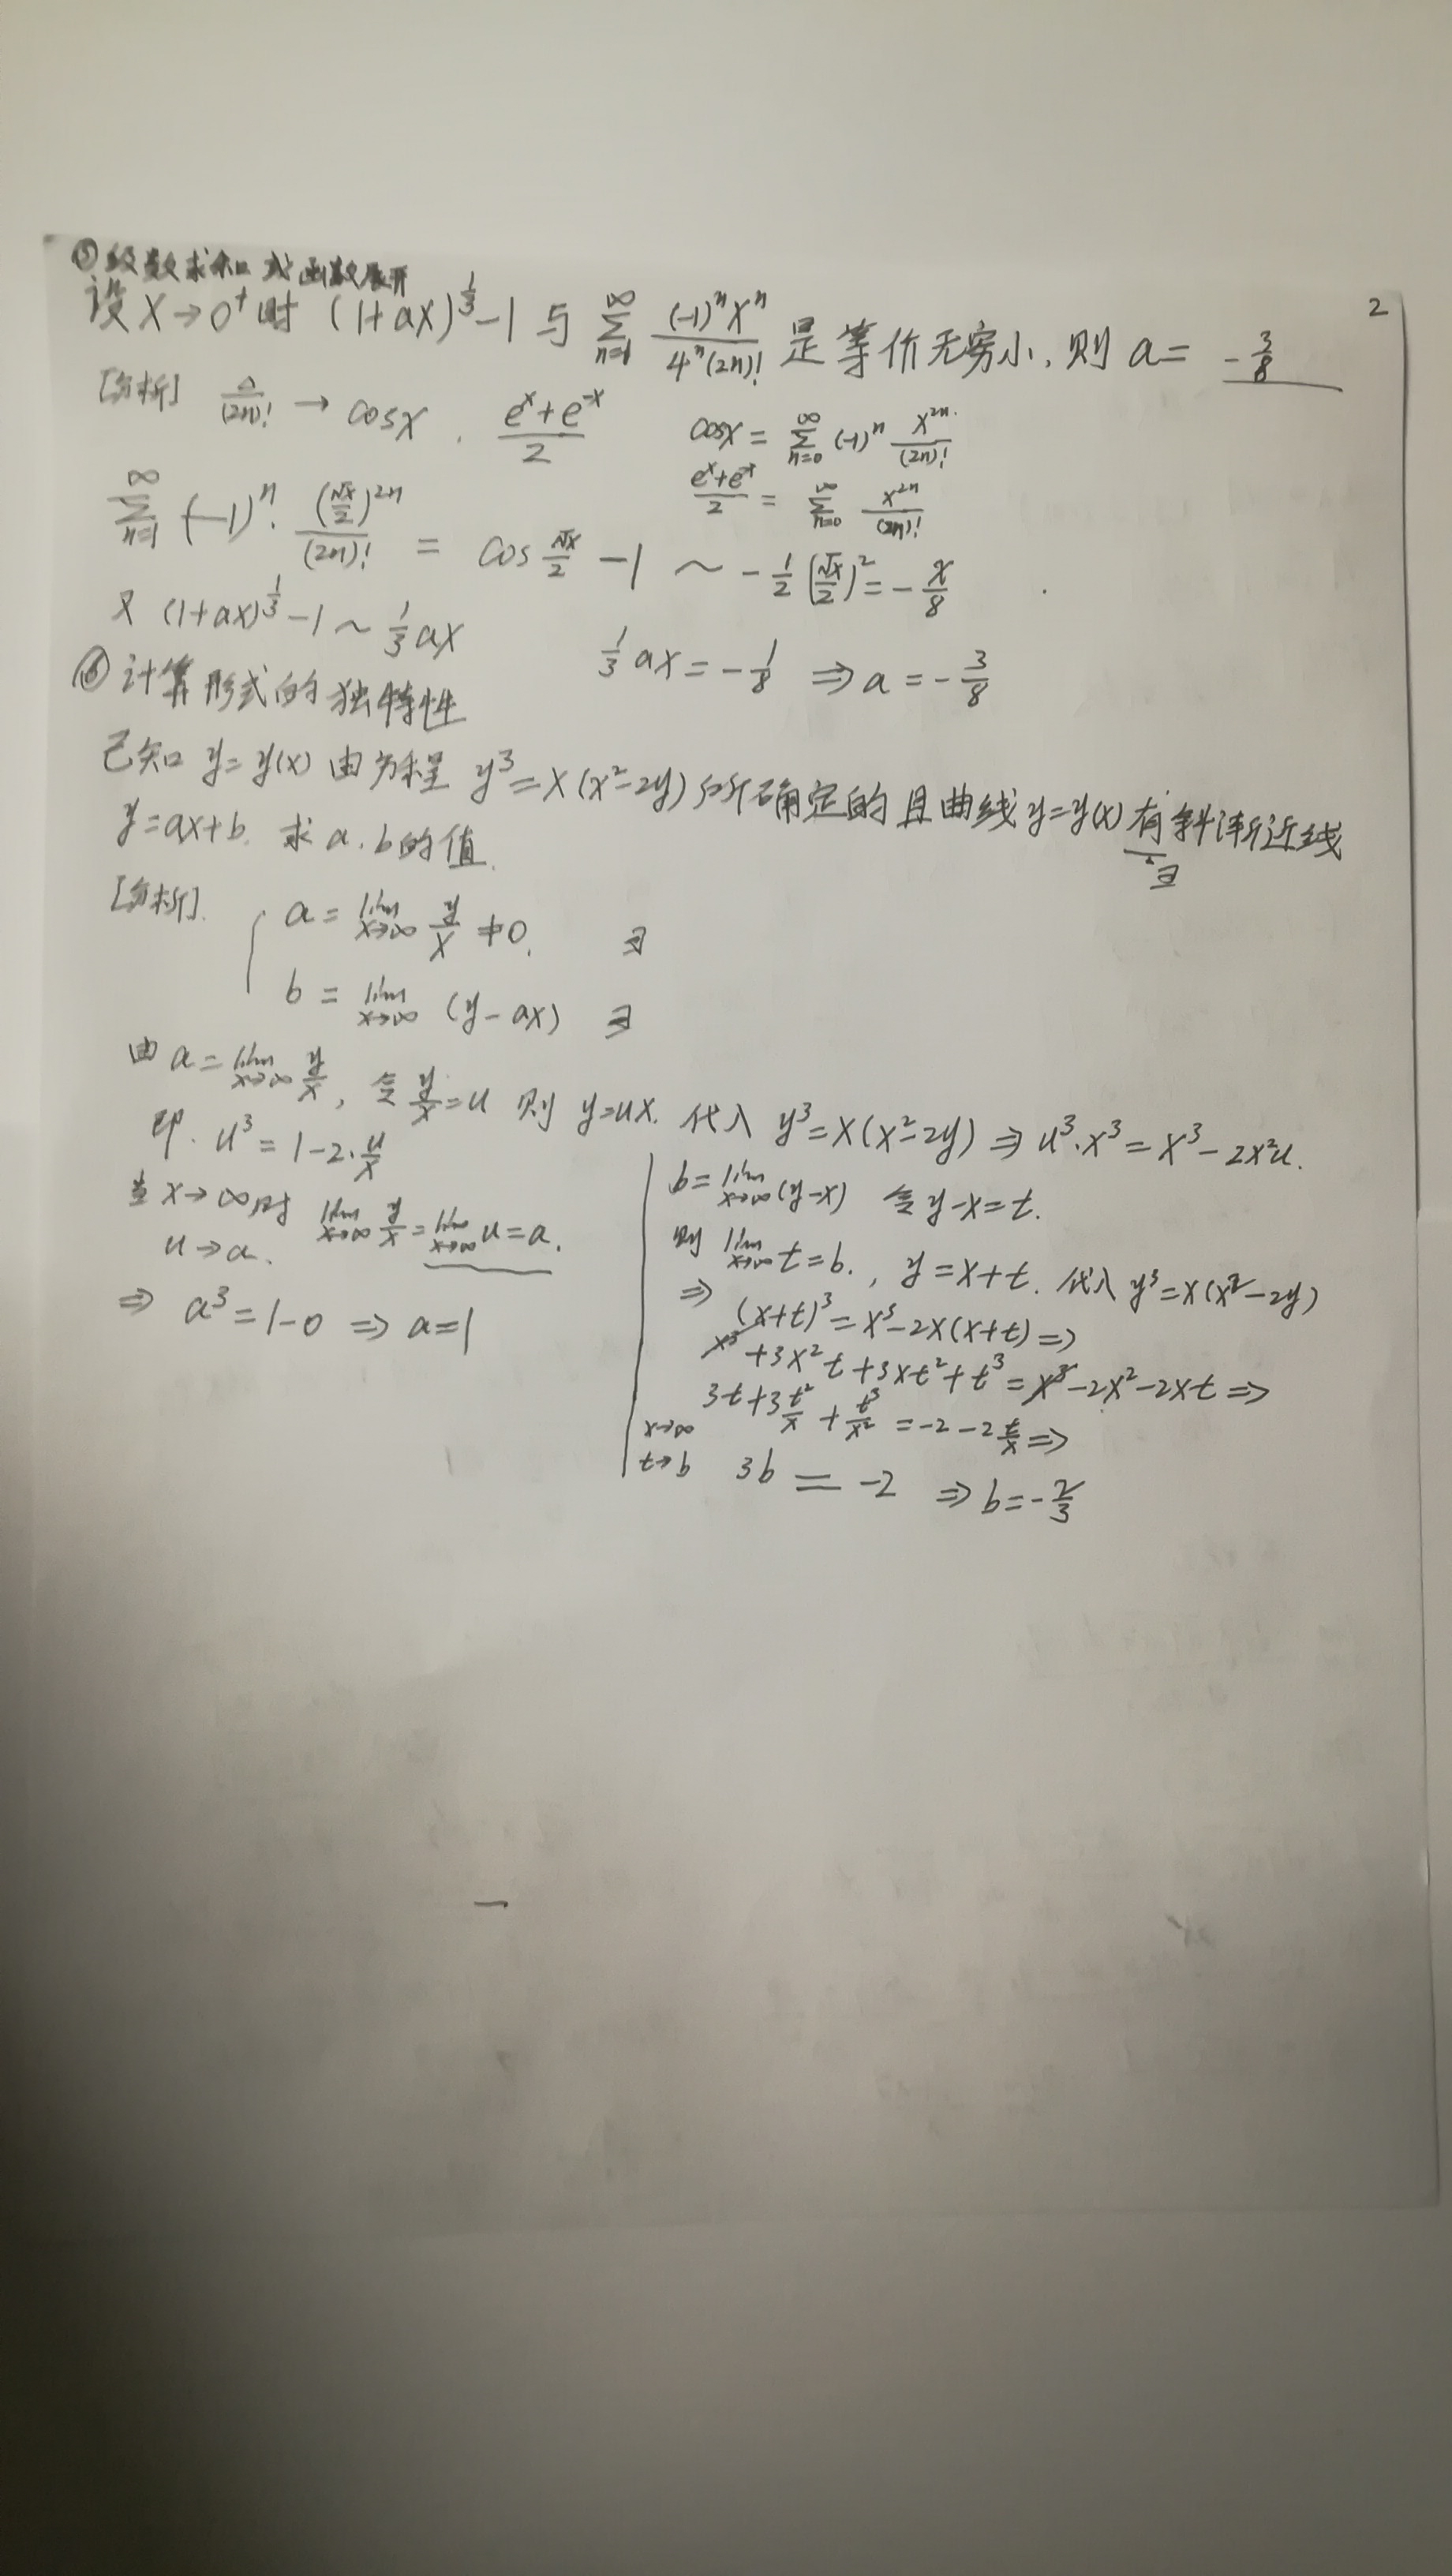 2
⑤级数求和或函数展开
设 X→0⁺时 (1+ax)^{1/3}-1 与 ∑_{n=1}^{∞} (-1)ⁿxⁿ/(4ⁿ(2n)!) 是等价无穷小,则 a= -3/8
[分析] △/(2n)! → cosx . (eˣ+e⁻ˣ)/2
cosx = ∑_{n=0}^{∞} (-1)ⁿ x²ⁿ/(2n)!
(eˣ+e⁻ˣ)/2 = ∑_{n=0}^{∞} x²ⁿ/(2n)!
∑_{n=1}^{∞} (-1)ⁿ · (√x/2)²ⁿ/(2n)! = cos √x/2 -1 ~ -1/2 (√x/2)² = -x/8
又 (1+ax)^{1/3}-1 ~ 1/3 ax
1/3 ax = -1/8 ⇒ a = -3/8
⑥计算形式的独特性
已知 y=y(x) 由方程 y³=x(x²-2y) 所确定的且曲线 y=y(x) 有斜渐近线
y=ax+b. 求 a.b的值.
[分析].
a = lim_{x→∞} y/x ≠0. ∃
b = lim_{x→∞} (y-ax) ∃
由 a = lim_{x→∞} y/x , 令 y/x=u 则 y=ux. 代入 y³=x(x²-2y) ⇒ u³·x³=x³-2x²u.
即. u³=1-2·u/x
当 x→∞时 lim_{x→∞} y/x = lim_{x→∞} u=a.
u→a.
⇒ a³=1-0 ⇒ a=1
b=lim_{x→∞}(y-x) 令 y-x=t.
则 lim_{x→∞} t=b. , y=x+t. 代入 y³=x(x²-2y)
⇒ (x+t)³=x³-2x(x+t) ⇒
x³+3x²t+3xt²+t³=x³-2x²-2xt ⇒
3t+3t²/x+t³/x²=-2-2t/x ⇒
x→∞
t→b 3b = -2 ⇒ b=-2/3